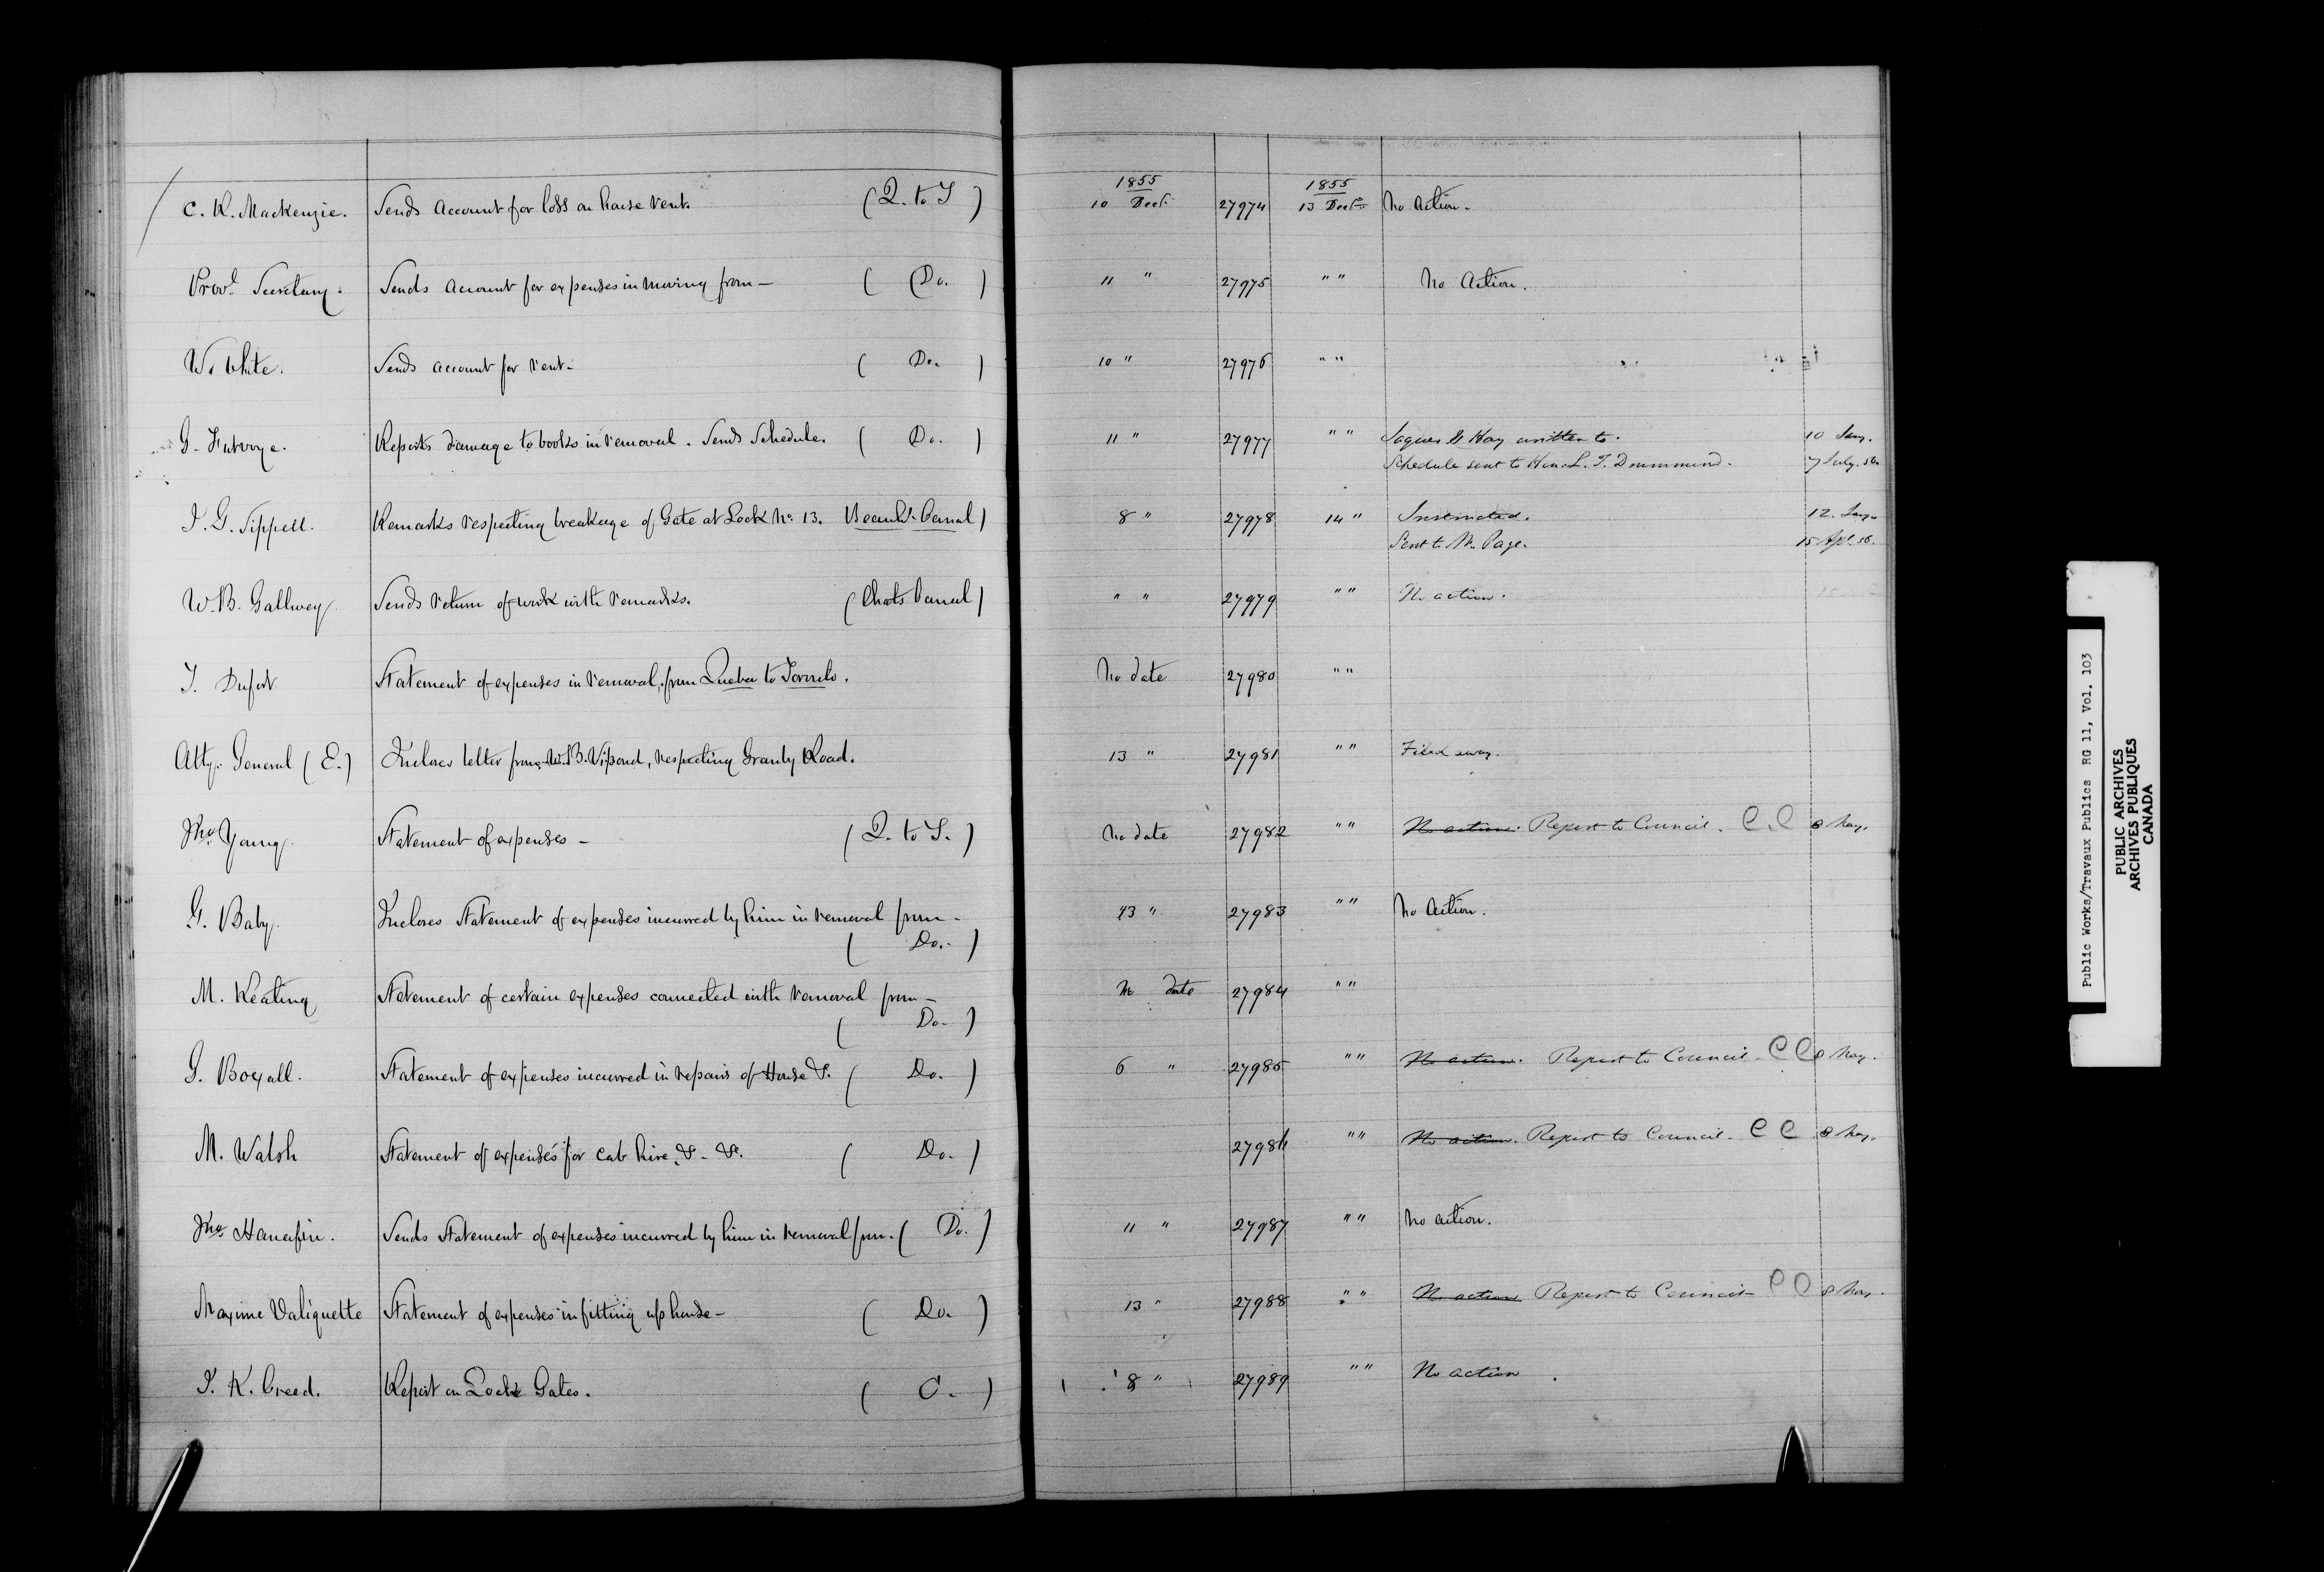 1855 1855
C. K. Mackenzie. Sends Account for loss on house rent. (Q. to T) 10 Decr. 27974 13 Decr. No Action.
Provl. Secretary. Sends Account for expenses in moving from — (Do.) 11 " 27975 " " No Action.
W. White. Sends account for rent — (Do.) 10 " 27976 " "
G. Futvoye. Reports damage to books in removal. Sends Schedule. (Do.) 11 " 27977 " " Jaques & Hay written to. 10 Jany.
Schedule sent to Hon. L. T. Drummond. 7 July. 56.
J. G. Sippell. Remarks respecting breakage of Gate at Lock No. 13. Beauhs. Canal) 8 " 27978 14 " Instructed. 12. Jany.
Sent to Mr. Page. 15 Apl. 56.
W. B. Gallwey. Sends return of work with remarks. (Chats Canal) " " 27979 " " No action.
T. Dufort Statement of expenses in removal, from Quebec to Toronto. No date 27980 " "
Atty. General (E.) Incloses letter from W. B. Vipond, respecting Granby Road. 13 " 27981 " " Filed away.
Jno. Young. Statement of expenses — (Q. to T.) No date 27982 " " No action. Report to Council. C.C 8 May.
G. Baby. Incloses Statement of expenses incurred by him in removal from —
(Do.) 13 " 27983 " " No Action.
M. Keating Statement of certain expenses connected with removal from —
(Do.) No date 27984 " "
G. Boxall. Statement of expenses incurred in repairs of House &. (Do.) 6 " 27985 " " No action. Report to Council. C C 8 May.
M. Walsh Statement of expenses for cab hire, &. &c. (Do.) 27986 " " No action. Report to Council. C C 8 May.
Jno. Hanafin. Sends Statement of expenses incurred by him in removal from. (Do.) 11 " 27987 " " No action.
Maxime Valiquette Statement of expenses in fitting up house — (Do.) 13 " 27988 " " No action Report to Council — C C 8 May.
J. K. Creed. Report on Lock Gates. (C.) 8 " 27989 " " No action
Public Works/Travaux Publics RG 11, Vol. 103
PUBLIC ARCHIVES
ARCHIVES PUBLIQUES
CANADA